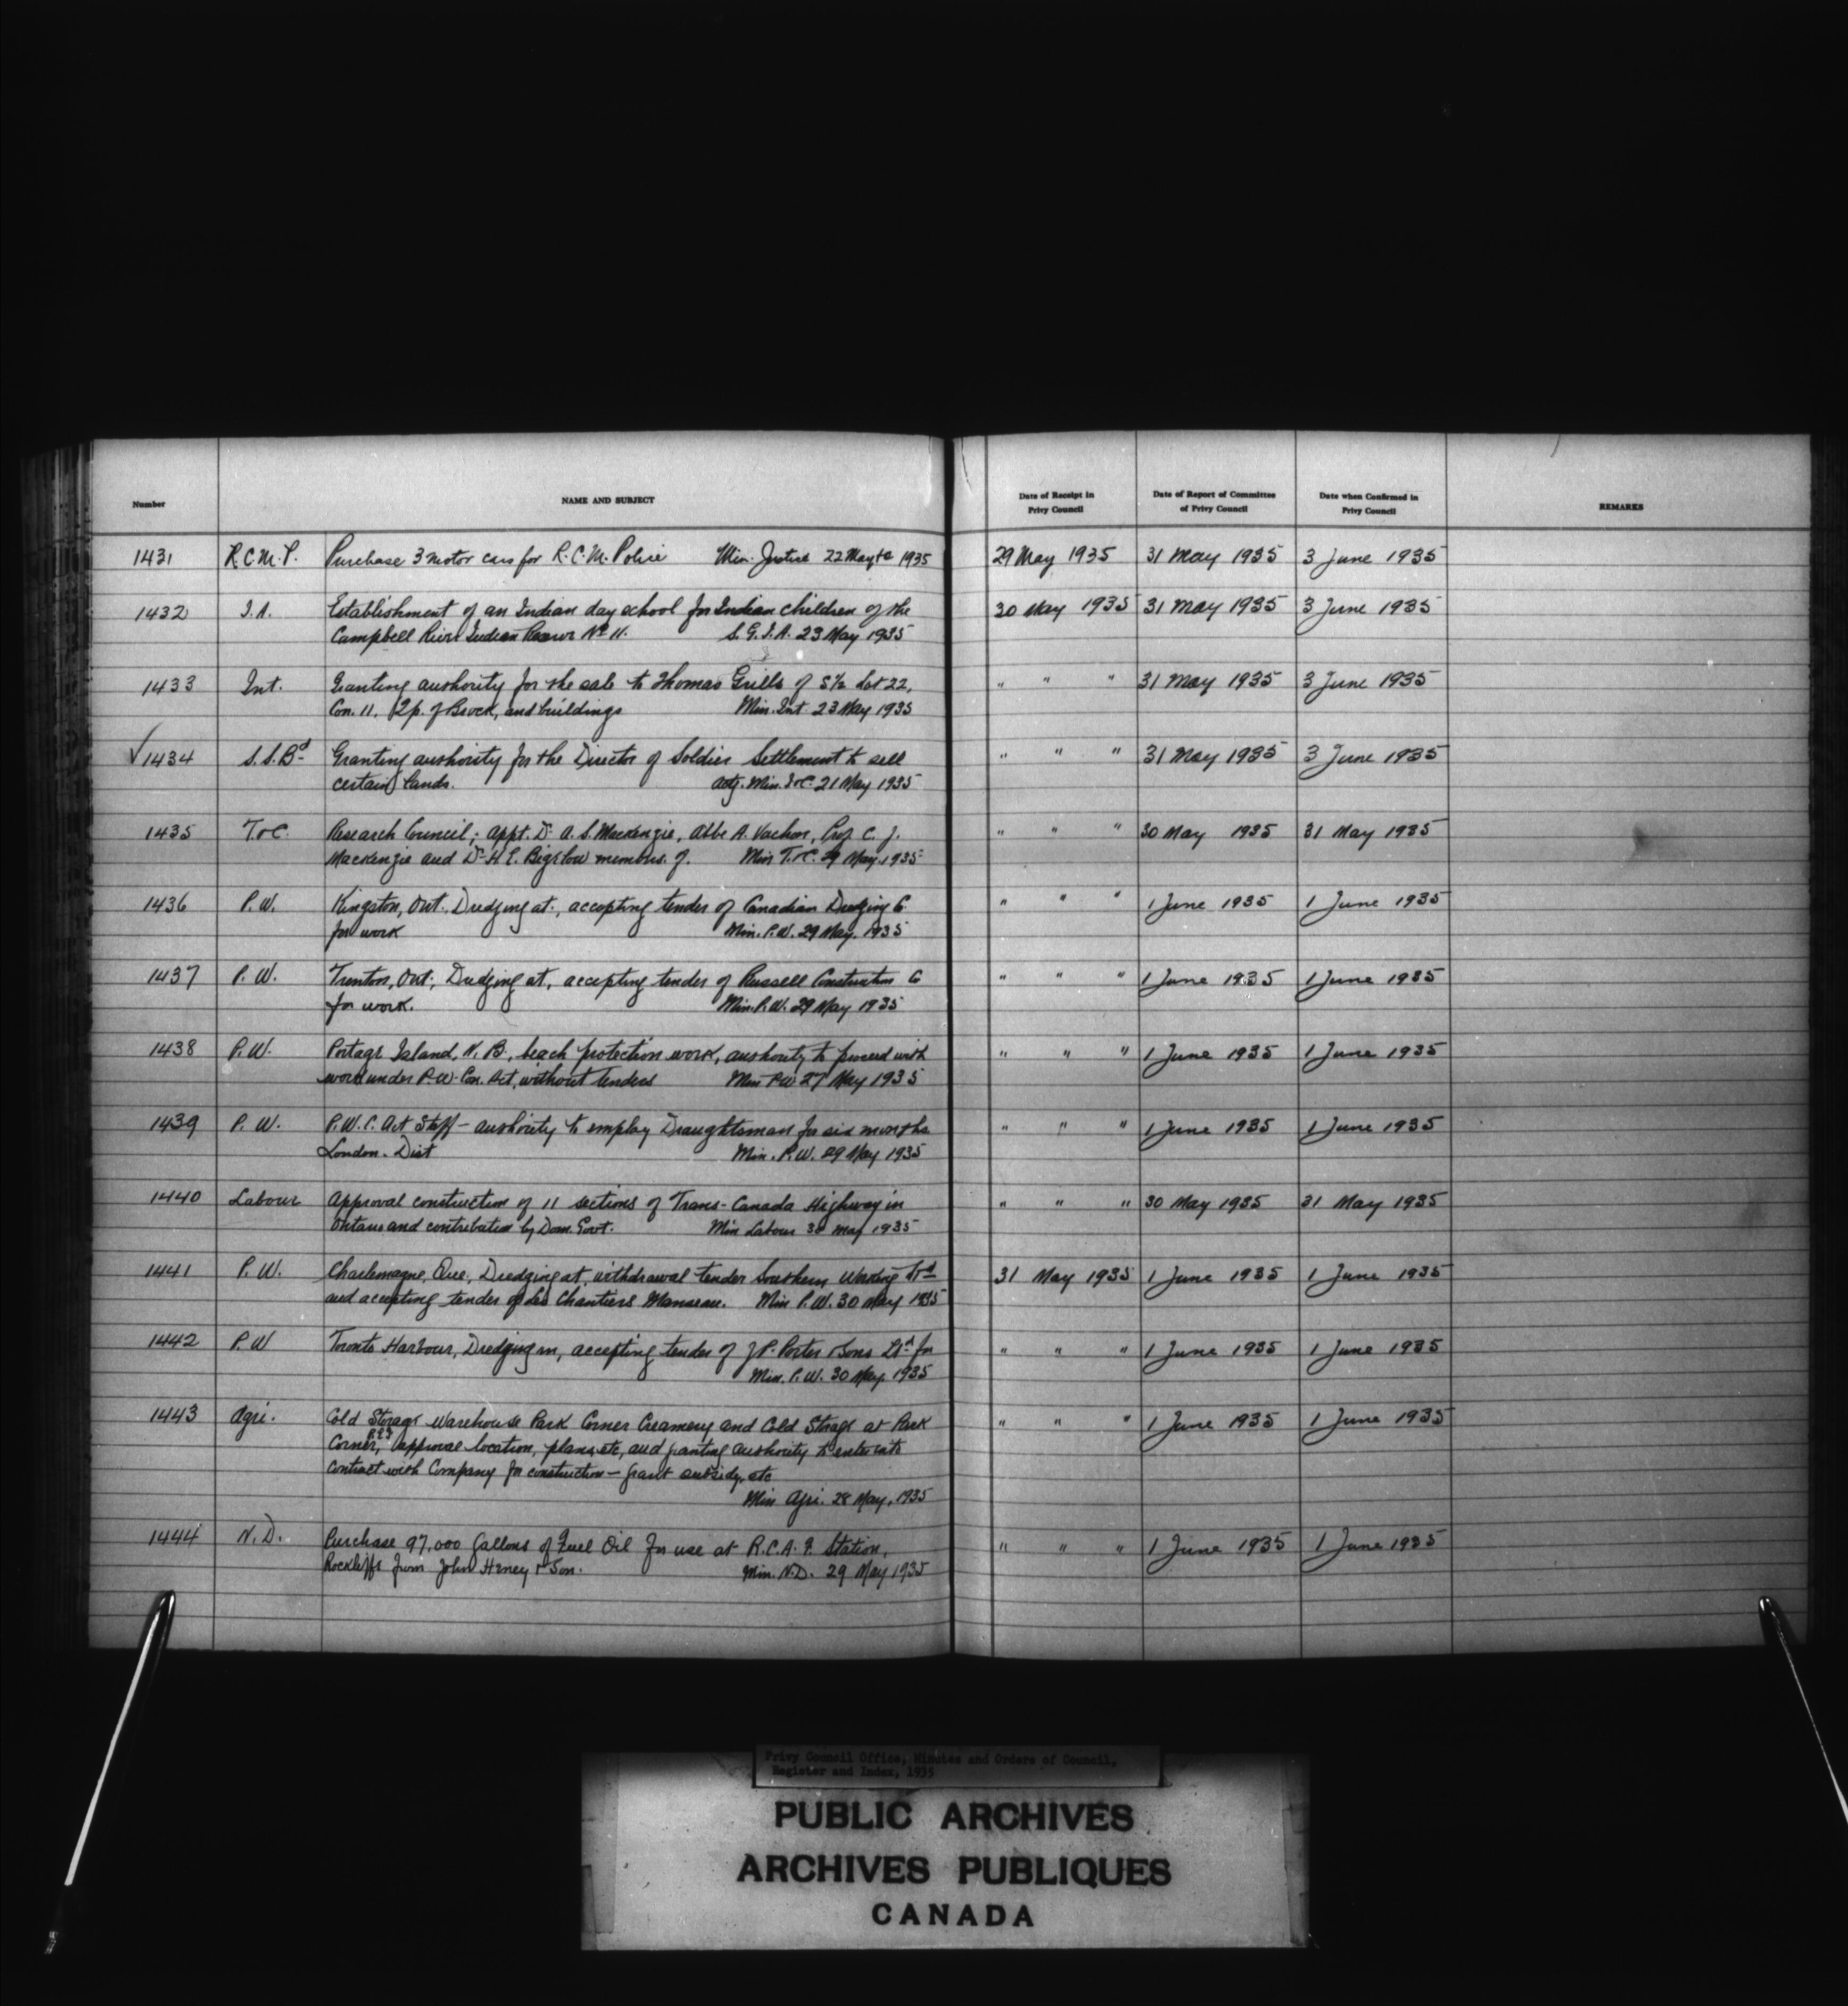 Number NAME AND SUBJECT Date of Receipt in Privy Council Date of Report of Committee of Privy Council Date when Confirmed in Privy Council REMARKS
1431 R.C.M.P. Purchase 3 motor cars for R.C.M. Police Min. Justice 22 May 1935 29 May 1935 31 May 1935 3 June 1935
1432 I.A. Establishment of an Indian day school for Indian children of the 30 May 1935 31 May 1935 3 June 1935
Campbell River Indian Reserve No 11. S.G.I.A. 23 May 1935
1433 Int. Granting authority for the sale to Thomas Grills of S½ Lot 22, " " " 31 May 1935 3 June 1935
Con. 11, Tp. of Brock, and buildings Min. Int. 23 May 1935
✓1434 S.S.Bd Granting authority for the Director of Soldier Settlement to sell " " " 31 May 1935 3 June 1935
certain lands. Actg. Min. I&C. 21 May 1935
1435 T&C. Research Council; appt. Dr. A.S. Mackenzie, Abbe A. Vachon, Prof C. J. " " " 30 May 1935 31 May 1935
Mackenzie and Dr H.E. Bigelow members of. Min T.&C. 29 May 1935
1436 P.W. Kingston, Ont. Dredging at, accepting tender of Canadian Dredging Co " " " 1 June 1935 1 June 1935
for work Min. P.W. 29 May. 1935
1437 P.W. Trenton, Ont; Dredging at, accepting tender of Russell Construction Co " " " 1 June 1935 1 June 1935
for work. Min. P.W. 29 May 1935
1438 P.W. Portage Island, N.B, beach protection work, authority to proceed with " " " 1 June 1935 1 June 1935
work under P.W. Con. Act, without tenders Min P.W. 27 May 1935
1439 P.W. P.W.C. Act Staff - authority to employ Draughtsman for six months " " " 1 June 1935 1 June 1935
London. Dist Min. P.W. 29 May 1935
1440 Labour Approval construction of 11 sections of Trans-Canada Highway in " " " 30 May 1935 31 May 1935
Ontario and contribution by Dom. Govt. Min Labour 30 May 1935
1441 P.W. Charlemagne, Que, Dredging at, withdrawal tender Southern Ltd 31 May 1935 1 June 1935 1 June 1935
and accepting tender of Les Chantiers Manseau. Min P.W. 30 May 1935
1442 P.W Toronto Harbour, Dredging in, accepting tender of J.P. Porter & Sons Ltd for " " " 1 June 1935 1 June 1935
Min. P.W. 30 May. 1935
1443 Agri. Cold Storage Warehouse Park Corner Creamery and Cold Storage at Park " " " 1 June 1935 1 June 1935
Corner, P.E.I. approval location, plans, etc, and granting authority to enter into
contract with Company for construction - grant subsidy, etc
Min Agri. 28 May, 1935
1444 N.D. Purchase 97,000 Gallons of Fuel Oil for use at R.C.A.F. Station, " " " 1 June 1935 1 June 1935
Rockliffe from John Heney & Son. Min. N.D. 29 May 1935
Privy Council Office, Minutes and Orders of Council,
Register and Index, 1935
PUBLIC ARCHIVES
ARCHIVES PUBLIQUES
CANADA